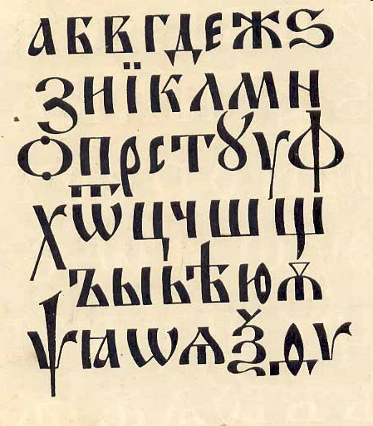 А Б В Г Д Е Ж Ѕ
З И Ї К Л М Н
Ѻ П Р С Т Ꙋ У Ф
Х Ѿ Ц Ч Ш Щ
Ъ Ы Ь Ѣ Ю Ѫ
Ѱ Ꙗ Ѡ Ѧ Ѯ Ѳ Ѵ